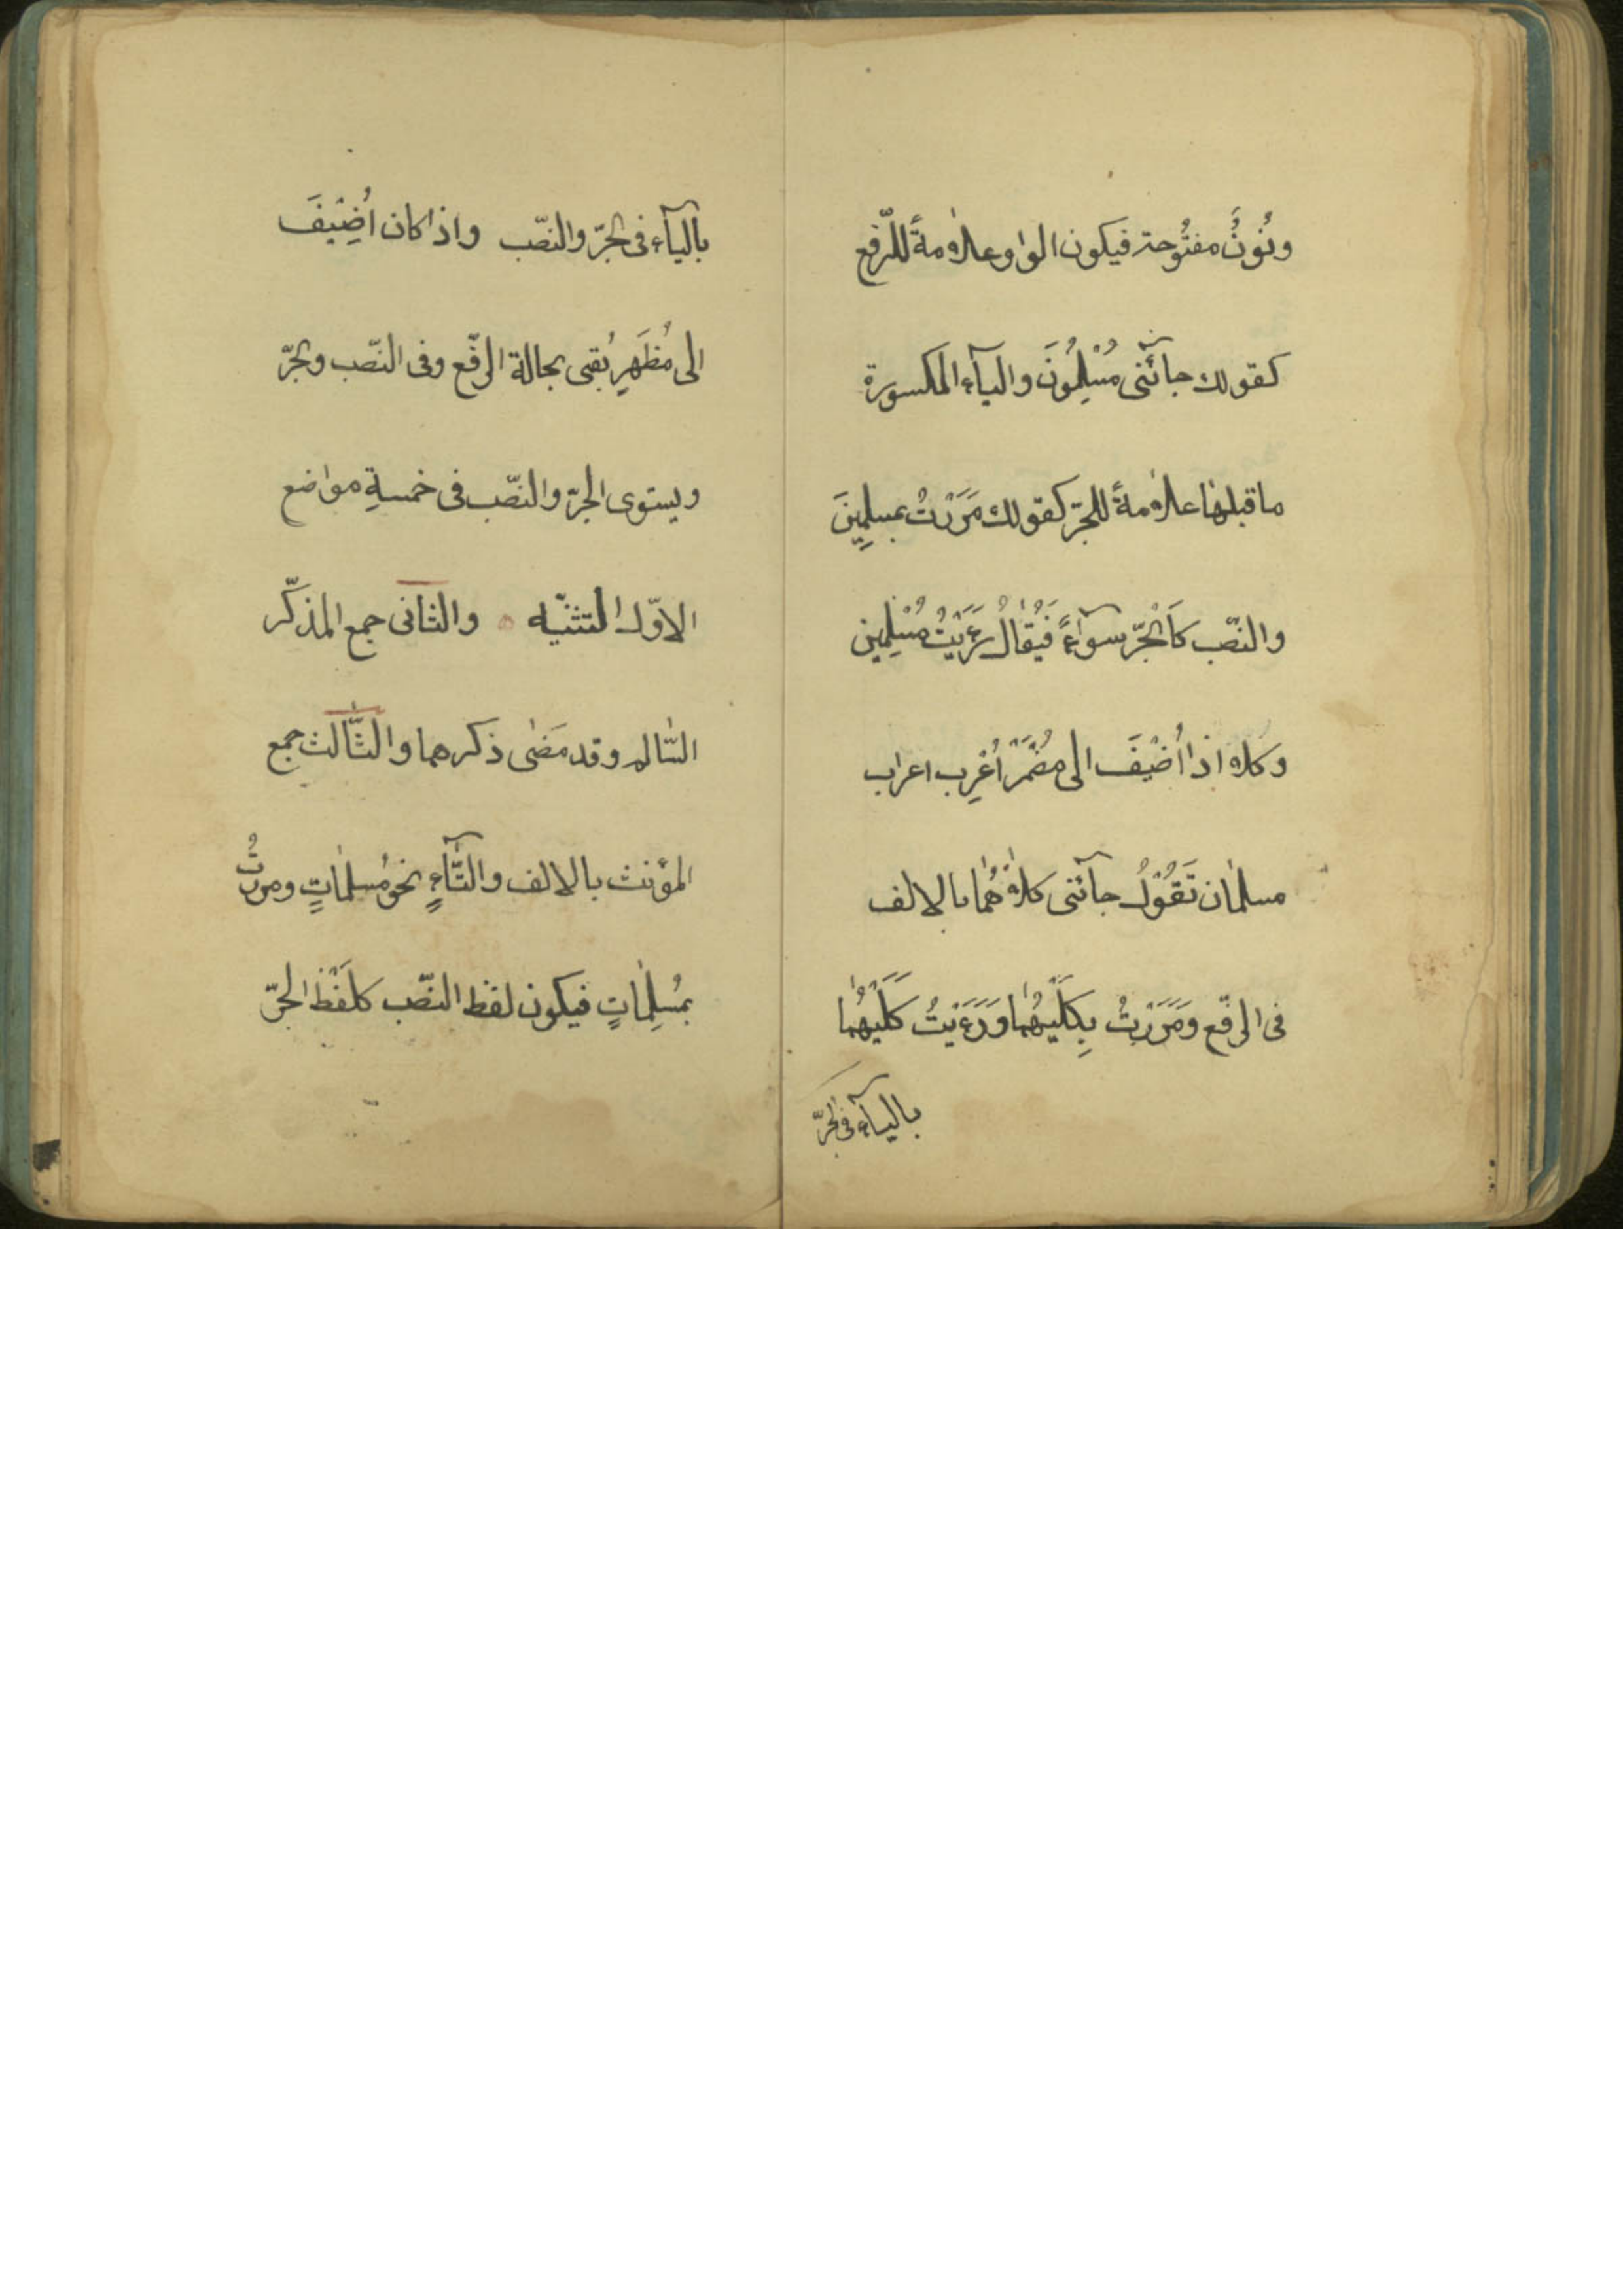 ونُونٌ مفتُوحة فيكون الواو علامةً للرّفع
كقولك جآئنى مُسْلِمُونَ واليآء المكسورة
ما قبلها علامةً للجرّ كقولك مَرَرْتُ بمسلِمِينَ
والنصّب كَالْجَرّ سوآءً فَيُقالُ رَءَيْتُ مُسْلِمين
وكلا اذا أُضْيفَ الى مُضْمَرْ أُعْرِب اعراب
مسلمان تَقُوْلُ جآئنى كلاهُما بالالف
فى الرفّع وَمَرَرْتُ بِكِلَيْهُما وَرَءَيْتُ كَلَيْهُما
باليآء فى الجرّ
باليآء فى الجرّ والنصّب واذا كان اُضِيْفَ
الى مُظْهَرٍ يُبقى بحالة الرفّع وفى النصّب والجرّ
ويستوى الجرّ والنصّب فى خمسةِ مواضع
الاوّل التثنّيه والثانى جمع المذكّر
السّالم وقد مَضى ذكرهما والثّالث جمع
المؤنث بالالف والتّآءِ نحو مُسلماتٍ ومررتُ
بمُسلِماتٍ فيكون لفظ النصّب كلَفْظ الجرّ